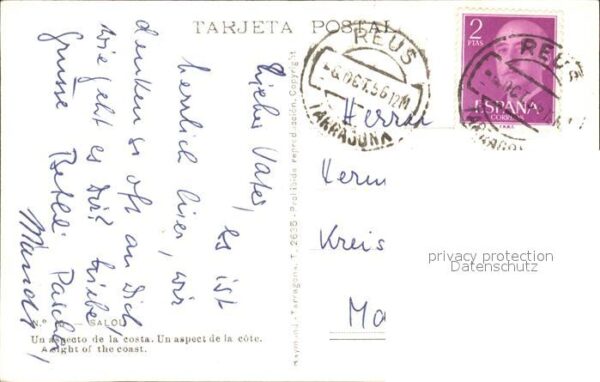 TARJETA POSTAL
REUS
-6.OCT.56 12M
TARRAGONA
2
PTAS
ESPAÑA
CORREOS
REUS
Lieber Vater, es ist
herrlich hier, wir
denken so oft an Dich
wie geht es Dir? Liebe
Grüsse
Herrn
Kreis
Raymond.-Tarragona. T. 2635 - Prohibida reproducción. Copyright.
privacy protection
Datenschutz
SALOU
Un aspecto de la costa. Un aspect de la côte.
A sight of the coast.